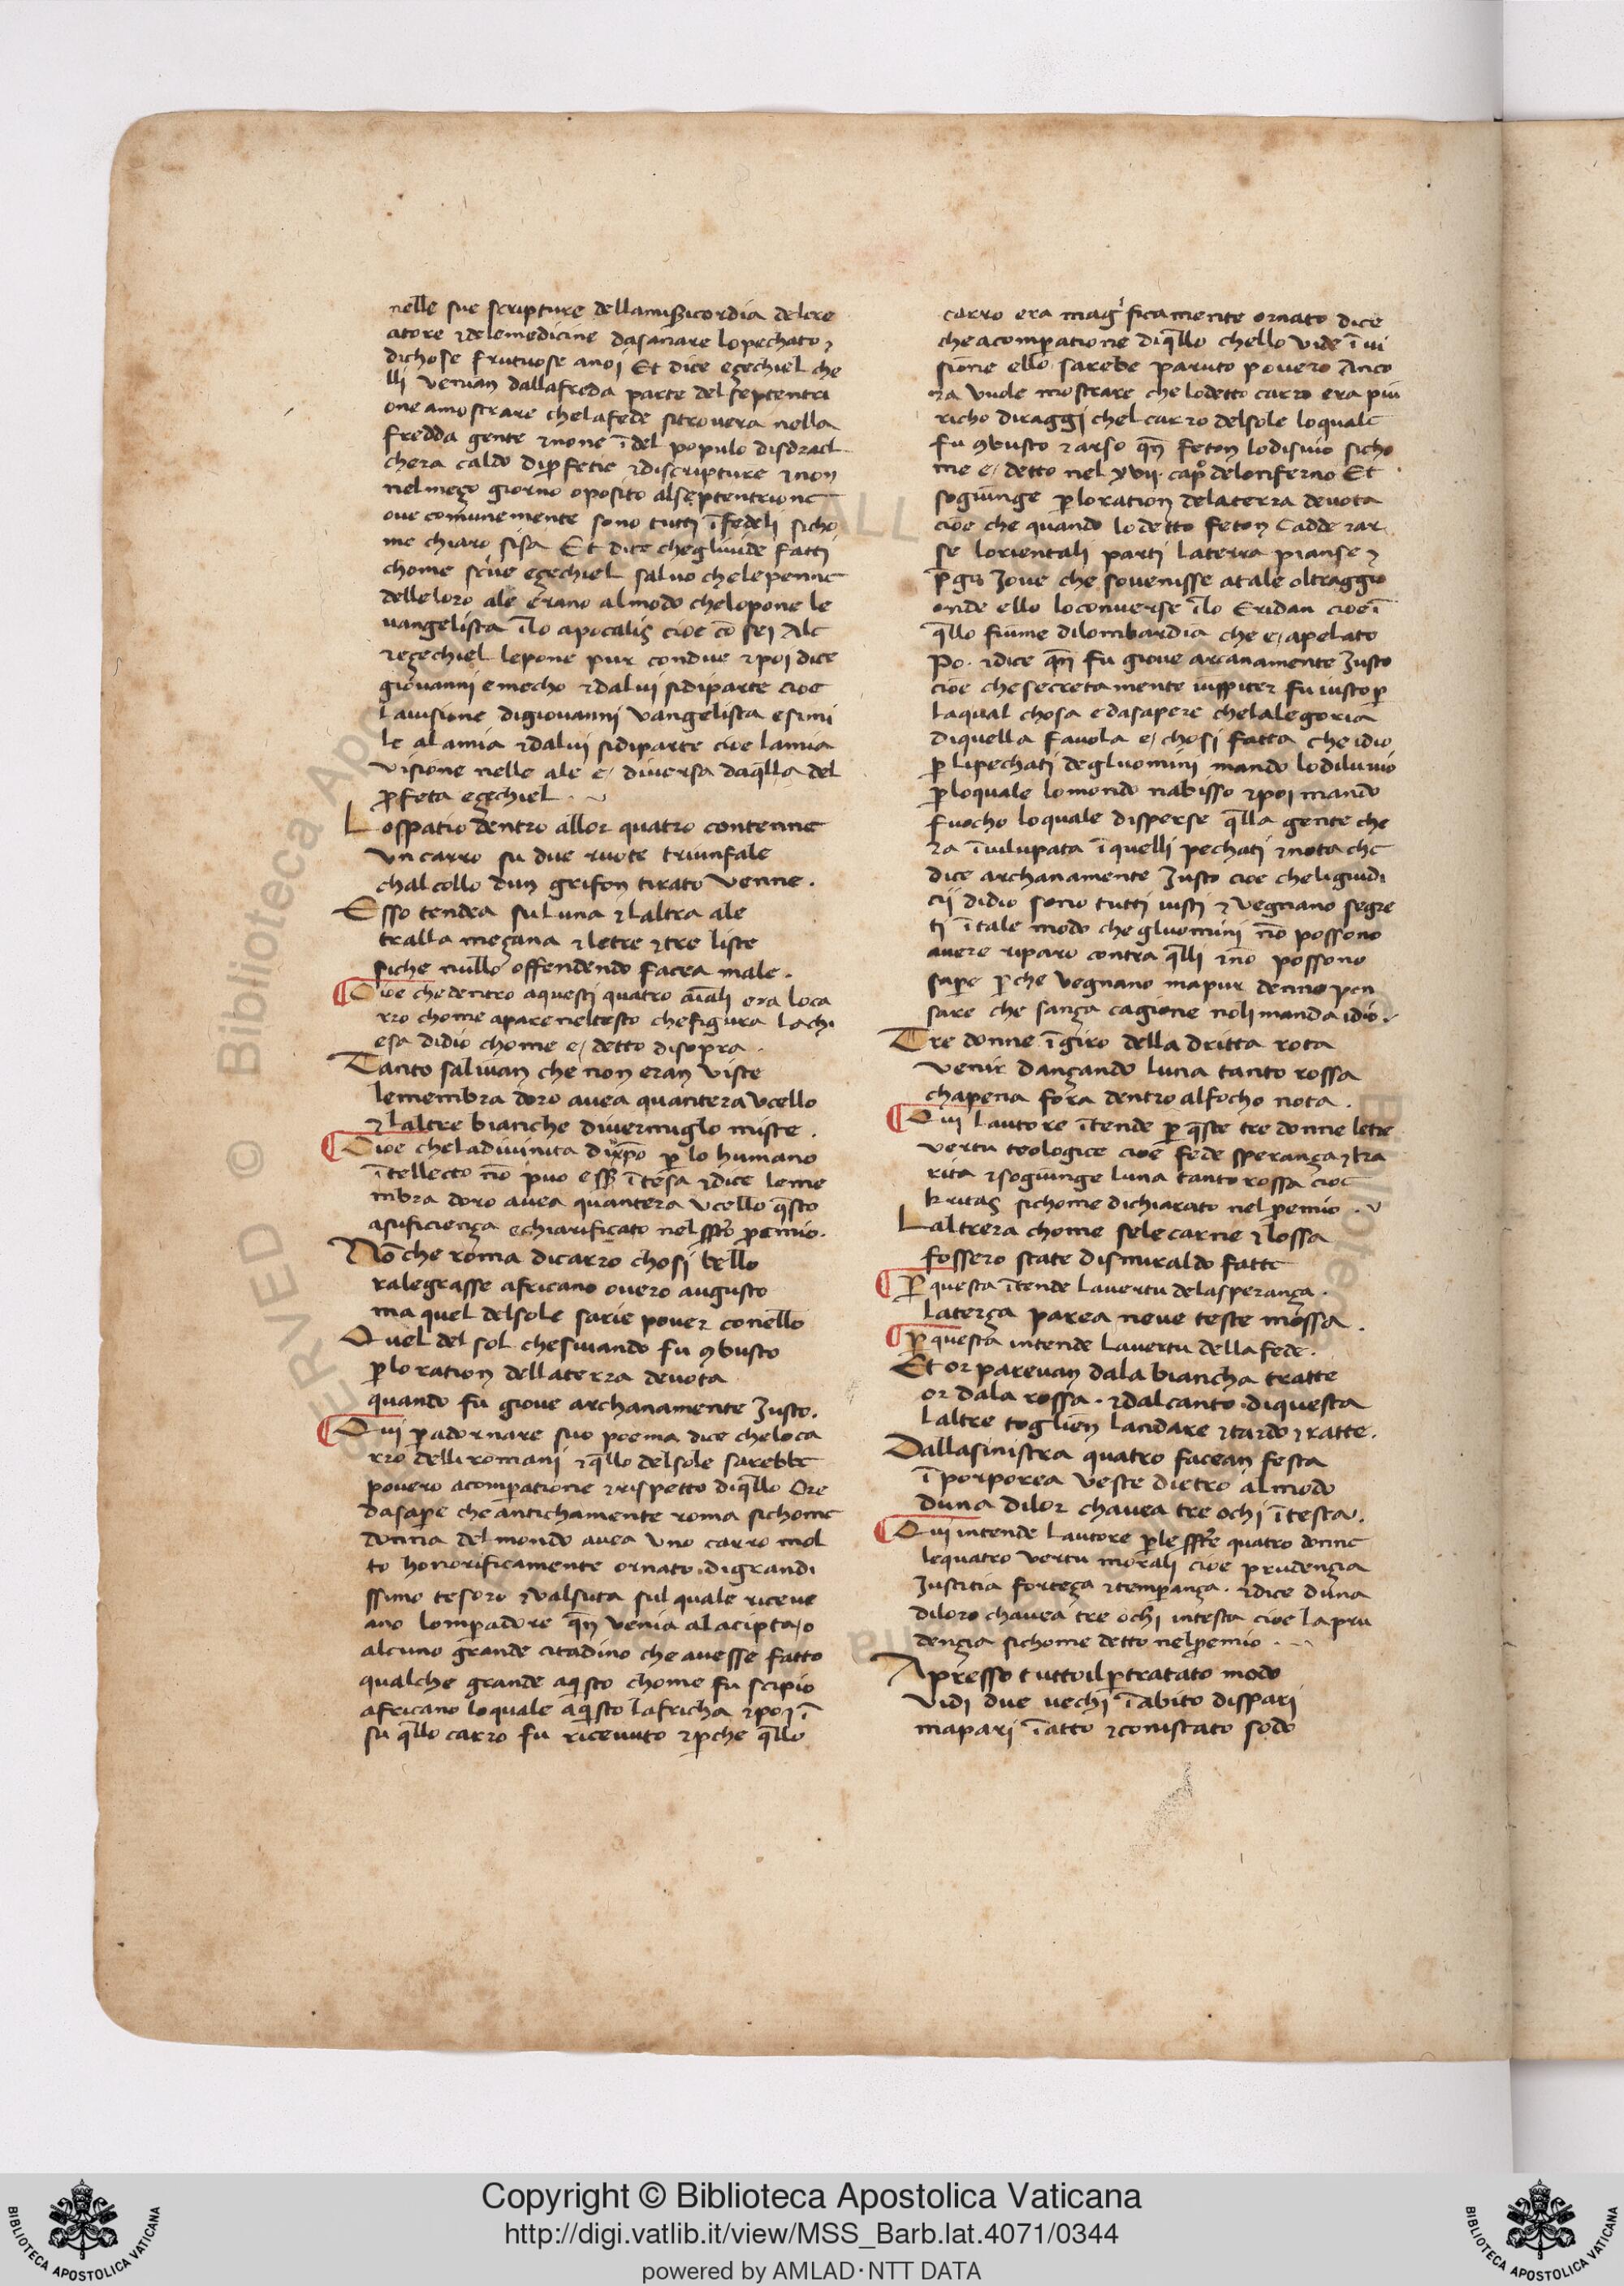 nelle sue scripture dellamisicordia delcre
atore ⁊delemedicine dasanare lopechato ⁊
dichose frutuose anoj Et dice eçechiel che
lli venian dallafreda parte del septentri
one amostrare chelafede sitrovera nella
fredda gente ⁊none ī del populo disdrael
chera caldo dipfetie ⁊discripture ⁊ non
nelmeço giorno oposito alseptentrione
ove comunemente sono tuttj īfedeli sicho
me chiaro sisa Et dice chegluide fattj
chome scive eçechiel salvo chelepenne
delleloro ale erano almodo chelopone le
vangelista īlo apocalis cioe cō sej Ale
⁊eçechiel lepone pur condue ⁊poj dice
giovanni emecho ⁊dalui sidiparte cioe
lavisione digiovannj vangelista esimi
le alamia ⁊dalui sidiparte cioe lamia
visione nelle ale e/ diversa daqlla del
pfeta eçechiel .
Lospatio dentro allor quatro contenne
vn carro su due ruote triunfale
chalcollo dun grifon tirato venne .
Esso tendea suluna ⁊laltra ale
tralla meçana ⁊letre ⁊tre liste
siche nullo offendendo facea male .
Cioe chedentro aquestj quatro aīalj era loca
rro chome apareneltesto chefigura lachi
esa didio chome e/ detto disopra .
Tanto salivan che non eran viste
lemembra doro avea quantera vcello
⁊laltre bianche divermiglo miste .
Cioe cheladivinita dixpo plo humano
ītellecto nō puo essr ītesa ⁊dice leme
mbra doro avea quantera vcello qsto
asuficiença echiarificato nel sstō pemio.
Nōche roma dicarro chosj bello
ralegrasse africano overo augusto
ma quel delsole sarie pover conello
Quel del sol chesviando fu 9busto
ploration dellaterra devota
quando fu giove archanamente Justo.
Quj padornare suo poema dice cheloca
rro dellj romanj ⁊qllo delsole sarebbe
povero acompatione ⁊rispetto diqllo Ore
dasape che antichamente roma sichome
donna del mondo avea vno carro mol
to honorificamente ornato digrandi
ssimo tesoro ⁊valsuta sul quale riceve
ano lompadore qn venia alacipta/o
alcuno grande citadino che avesse fatto
qualche grande aqisto chome fu scipio
africano loquale aqisto lafricha ⁊poj ī
su qllo carro fu ricevuto ⁊pche qllo
carro era magificamente ornato dice
che acompatione diqllo chello vide īui
sione ello sarebe paruto povero Anco
ra vuole mostrare che lodetto carro era piu
richo diraggj chel carro delsole loquale
fu 9busto ⁊arso qn feton lodisvio sicho
me e/ detto nel xvij capº deloniferno Et
sogiunge ploration delaterra devota
cioe che quando lo detto feton Cadde ⁊ar
se lorientali partj laterra pianse ⁊
pgo Jove che sovenisse atale oltraggio
onde ello loconverse īlo Eridan cioe ī
qllo fiume dilombardia che e/ apelato
Po . ⁊dice qn fu giove arcanamente Justo
cioe chesecretamente iuppiter fu iusto p
laqual chosa edasapere chelalegoria
diquella favola e/ chosj fatta che idio
p lipechatj degluominj mando lodiluvio
ploquale lomondo nabisso ⁊poj mando
fuocho loquale disperse qlla gente che
ra īvilupata īquellj pechatj ⁊nota che
dice archanamente Justo cioe cheligiudi
cij didio sono tuttj iustj ⁊ vegnano segre
tj ītale modo che gluominj nō possono
avere riparo contra qllj ⁊nō possono
sape pche vegnano mapur denno pen
sare che sança cagione nōli manda idio .
Tre donne īgiro della dritta rota
venir dançando luna tanto rossa
chapena fora dentro alfocho nota .
Quj lautore ītende p qste tre donne letre
vertu teologice cioe fede sperança ⁊ka
rita ⁊sogiunge luna tanto rossa cioe
karitas sichome dichiarato nel pemio .
Laltrera chome selecarne ⁊lossa
fossero state dismiraldo fatte
P questa ītende lavertu delasperança .
laterça parea neve teste mossa .
P questa intende lavertu della fede .
Et or parevan dala biancha tratte
or dala rossa . ⁊dalcanto diquesta
laltre toglien landare ⁊tardo ⁊ratte .
Dallasinistra quatro facean festa
īporporea veste dietro almodo
duna dilor chavea tre ochi ītesta .
Quj intende lautore ple sste quatro donne
lequatro vertu moralj cioe prudençia
Justitia forteça ⁊temperança . ⁊dice duna
diloro chavea tre ochj intesta cioe lapru
dençia sichome detto nelpemio .
Apresso tuttoilptratato nodo
vidi due vechi īabito disparj
maparj īatto ⁊conistato sodo
Copyright © Biblioteca Apostolica Vaticana
http://digi.vatlib.it/view/MSS_Barb.lat.4071/0344
powered by AMLAD·NTT DATA
BIBLIOTECA APOSTOLICA VATICANA
BIBLIOTECA APOSTOLICA VATICANA